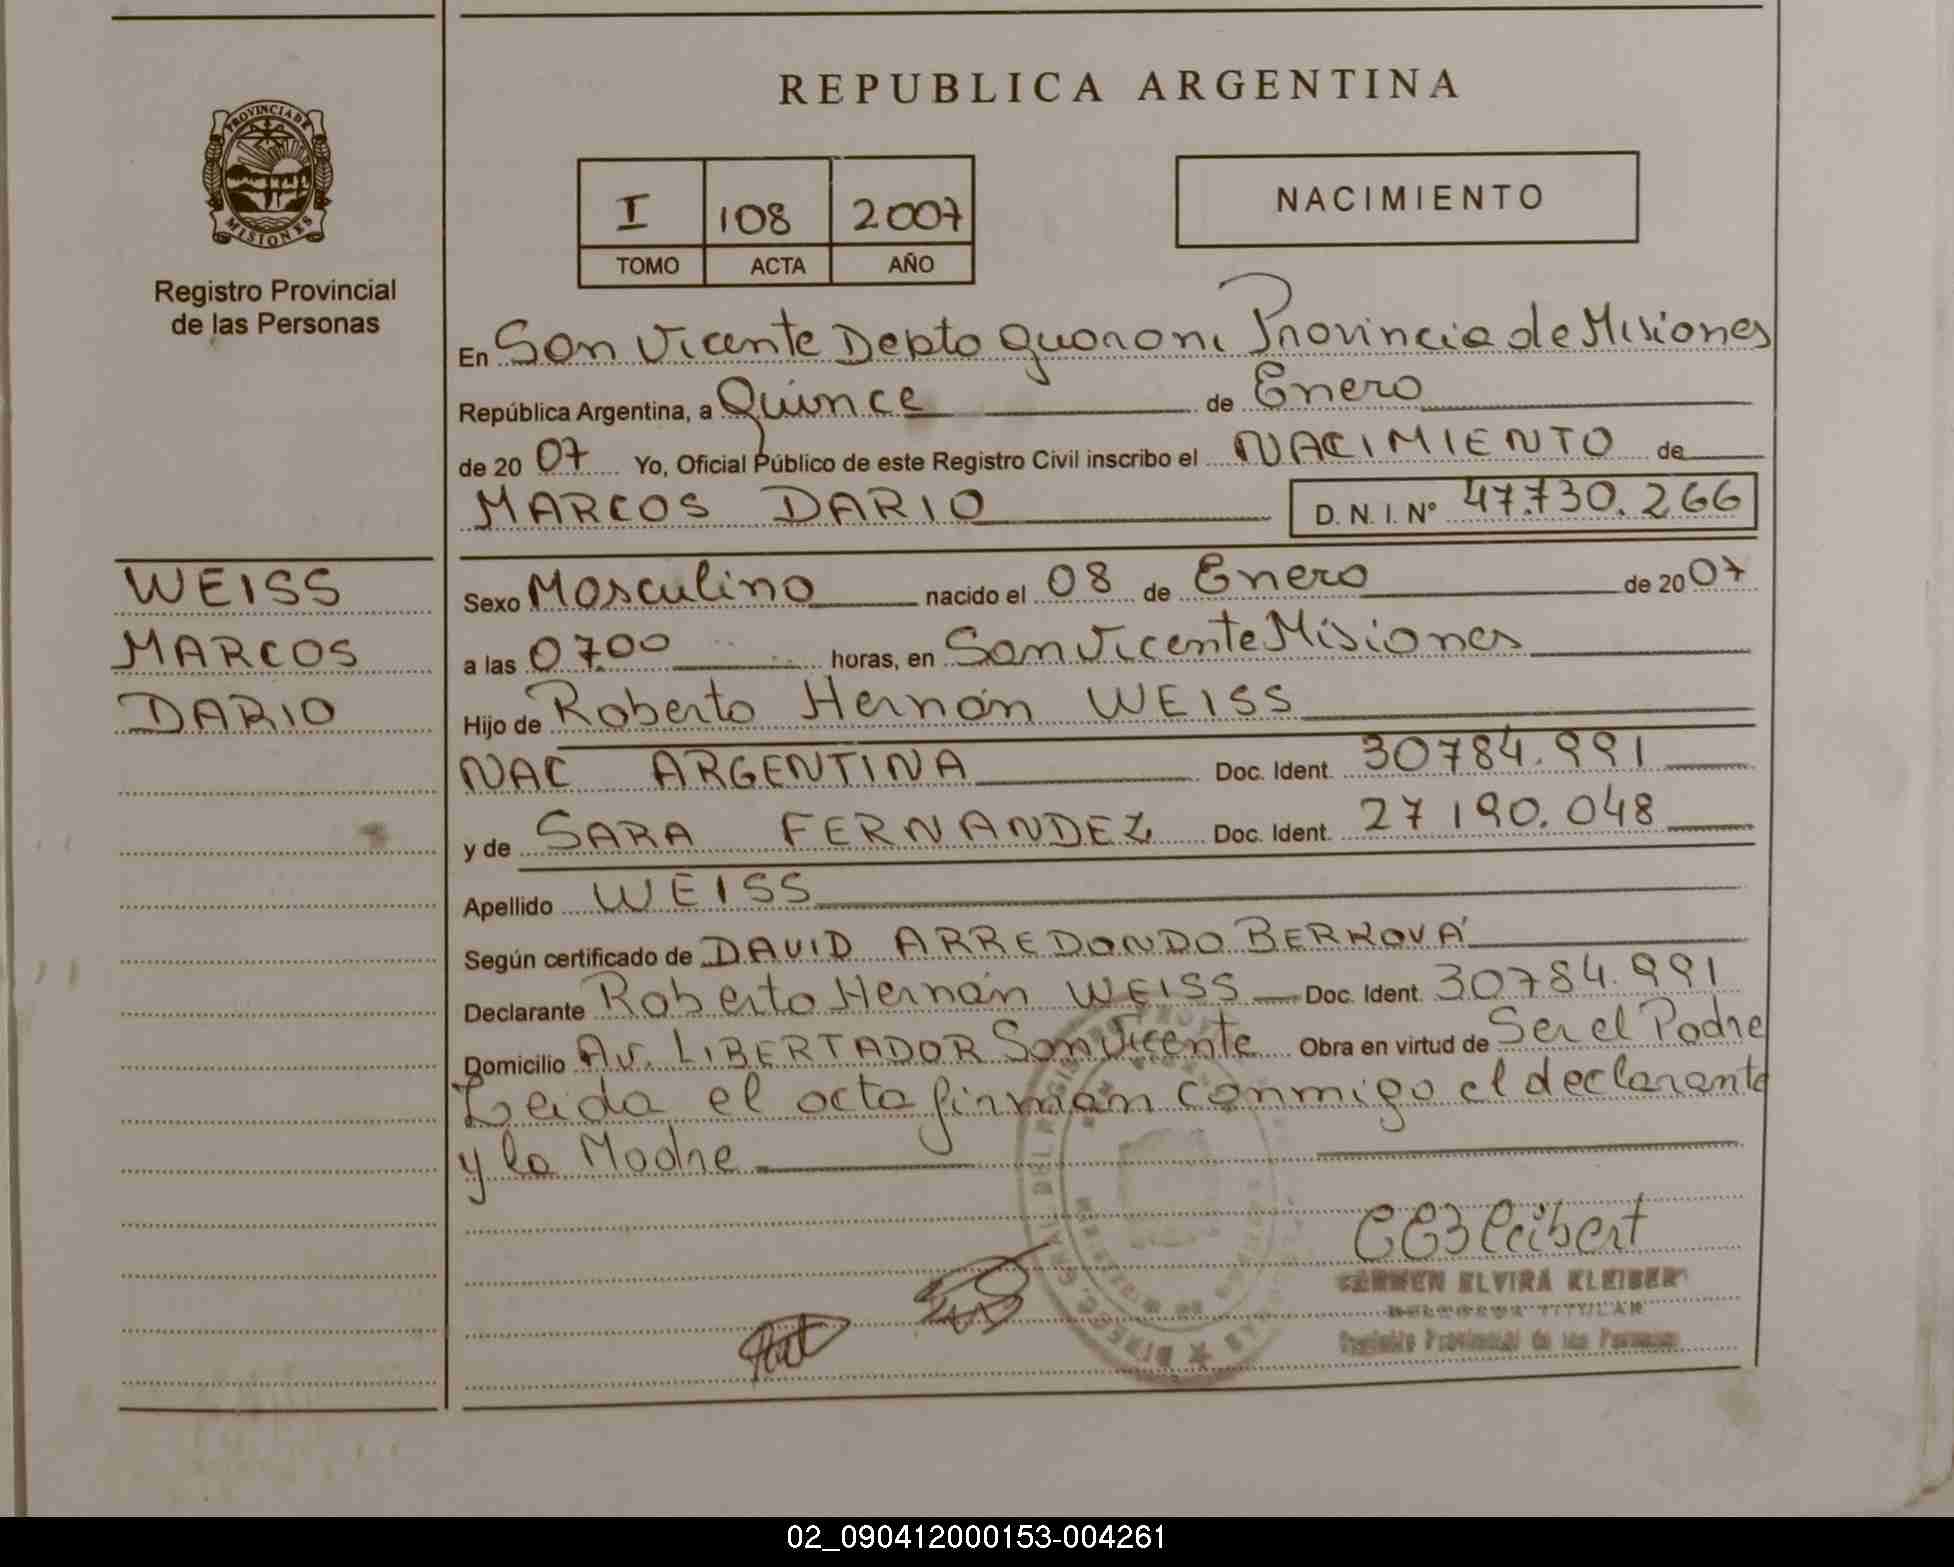 REPUBLICA ARGENTINA
PROVINCIA DE
MISIONES
Registro Provincial
de las Personas
NACIMIENTO
I 108 2007
TOMO ACTA AÑO
En San Vicente Depto Guarani Provincia de Misiones
República Argentina, a Quince de Enero
de 20 07 Yo, Oficial Público de este Registro Civil inscribo el NACIMIENTO de
MARCOS DARIO D. N. I. Nº 47.730.266
WEISS
MARCOS
DARIO
Sexo Masculino nacido el 08 de Enero de 20 07
a las 07.00 horas, en San Vicente Misiones
Hijo de Roberto Hernán WEISS
NAC ARGENTINA Doc. Ident. 30784.991
y de SARA FERNANDEZ Doc. Ident. 27190.048
Apellido WEISS
Según certificado de DAVID ARREDONDO
Declarante Roberto Hernán WEISS Doc. Ident. 30784.991
Domicilio AV. LIBERTADOR San Vicente Obra en virtud de Ser el Padre
Leida el acta firman conmigo el declarante
y la Madre
CARMEN ELVIRA KLEIBER
TITULAR
Provincial de las Personas
02_090412000153-004261